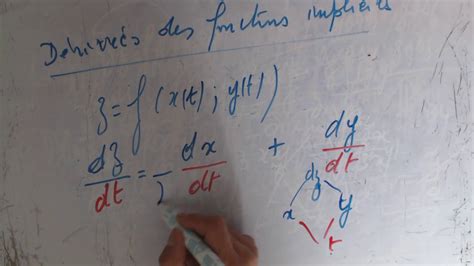 Dérivées des fonctions implicites
z = f (x(t) ; y(t))
dz/dt = — dx/dt + dy/dt
dz
x y
t